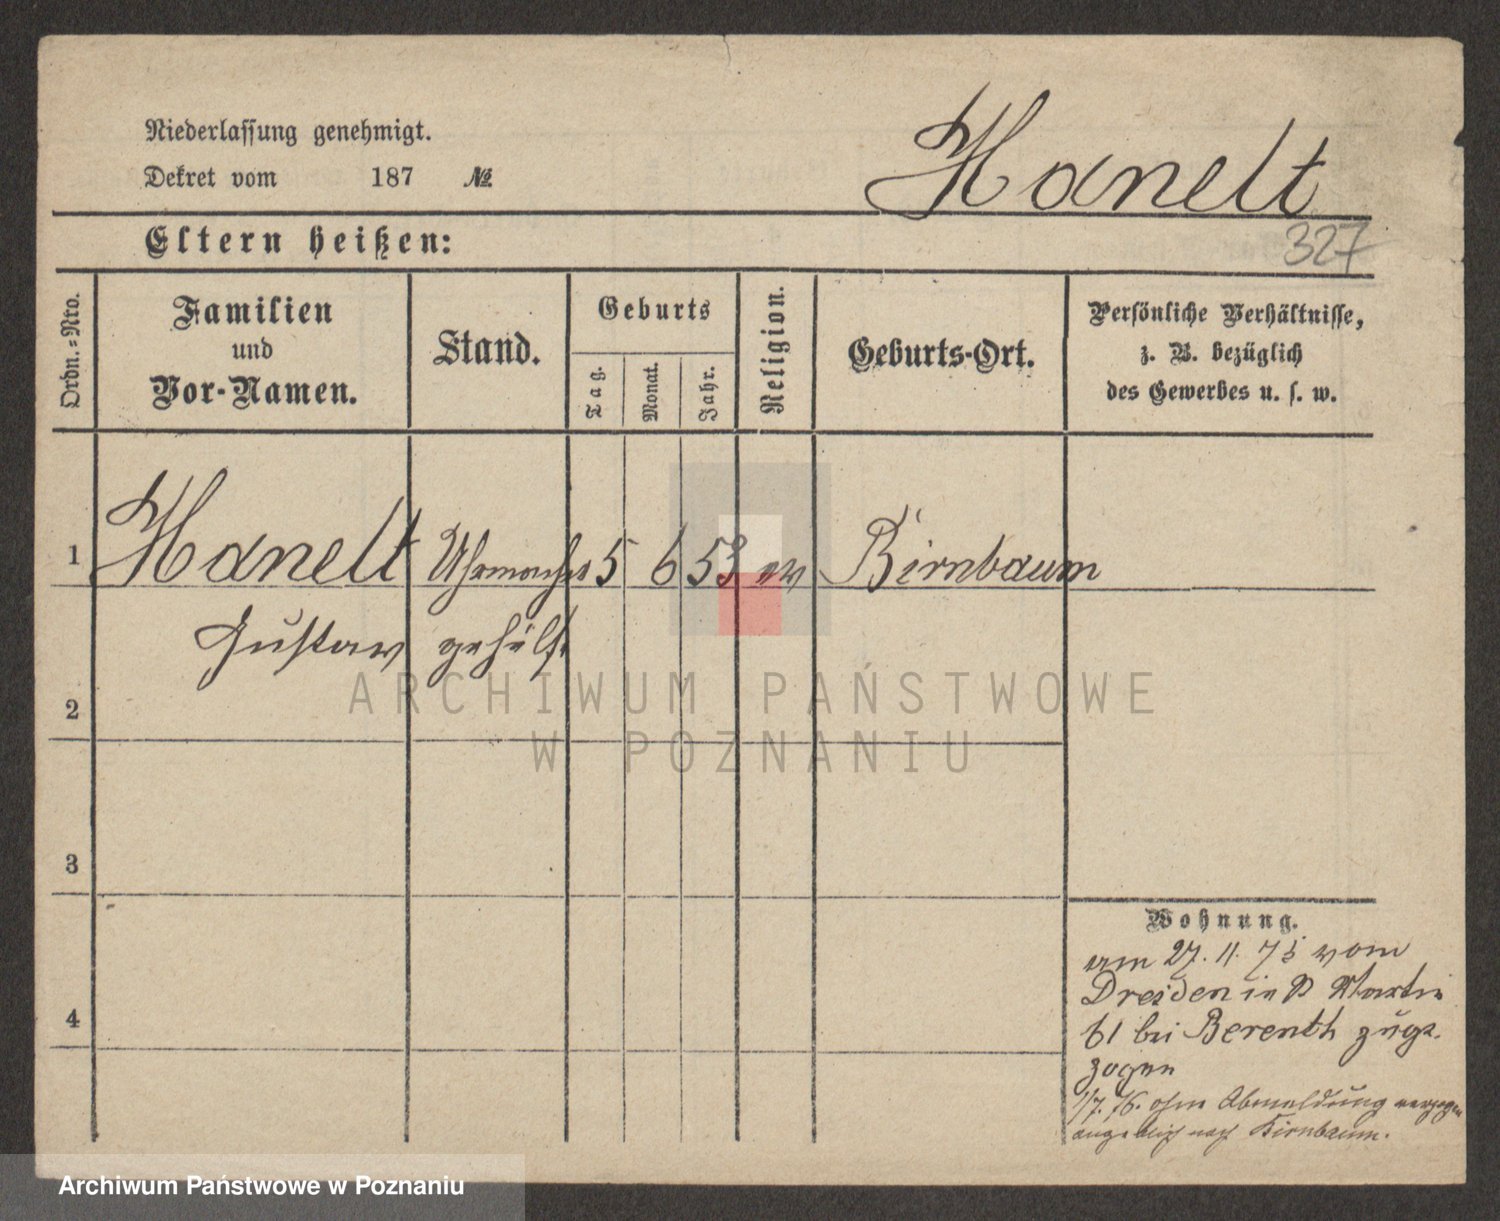 Niederlassung genehmigt.
Dekret vom 187 №
Hanelt
327
Eltern heißen:
Ordn.=Nro.
Familien
und
Vor-Namen.
Stand.
Geburts
Tag.
Monat.
Jahr.
Religion.
Geburts-Ort.
Persönliche Verhältnisse,
z. B. bezüglich
des Gewerbes u. s. w.
1 Hanelt Uhrmacher 5 6 53 ev Birnbaum
Gustav gehülfe
2
3
4
Wohnung.
am 27. 11. 75 vom
Dresden in P Martin
61 bei Berenth zuge-
zogen
1/7. 76. ohne Abmeldung verzogen
angeblich nach Birnbaum.
ARCHIWUM PAŃSTWOWE
W POZNANIU
Archiwum Państwowe w Poznaniu